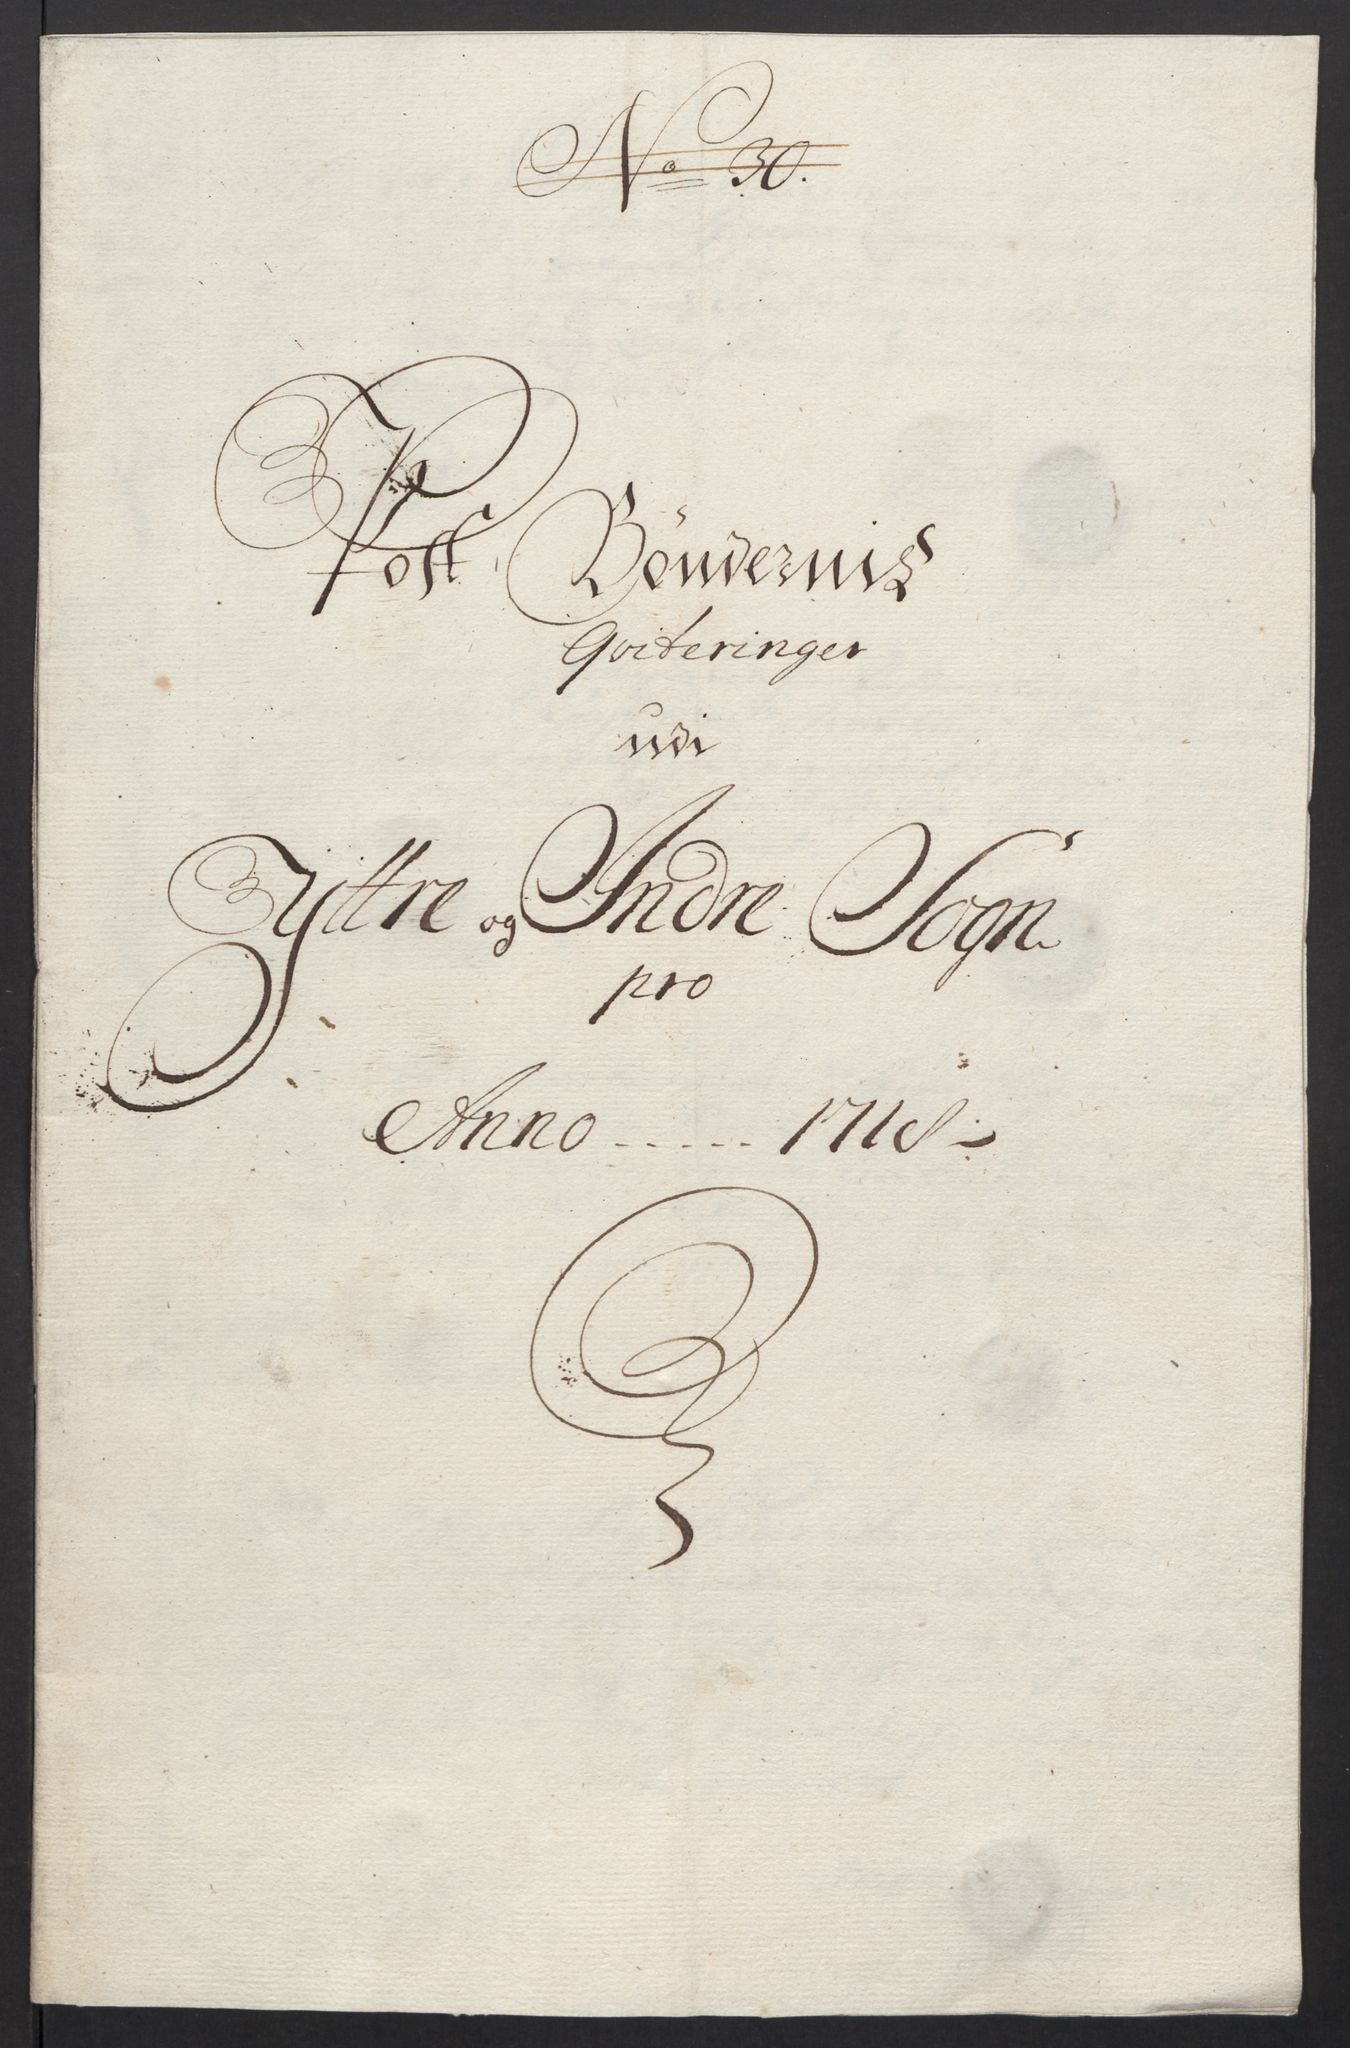 No 30.
Post Bøndernis
Qviteringer
udi
Yttre og Indre Sogn
pro
Anno ..... 1718